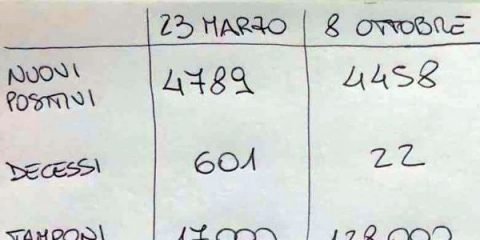 23 MARZO 8 OTTOBRE
NUOVI
POSITIVI 4789 4458
DECESSI 601 22
TAMPONI 17.000 128.000